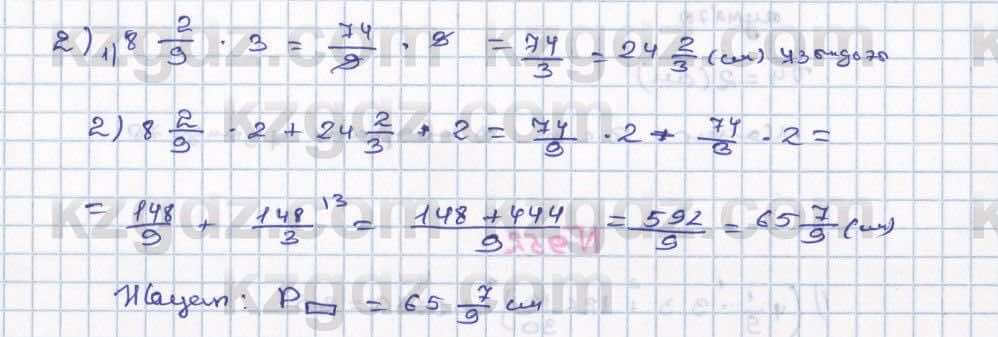 2) 1) 8 2/9 · 3 = 74/9 · 3 = 74/3 = 24 2/3 (см) ұзындығы
2) 8 2/9 · 2 + 24 2/3 · 2 = 74/9 · 2 + 74/3 · 2 =
= 148/9 + 148/3 |3 = 148+444/9 = 592/9 = 65 7/9 (см)
Жауап: P▭ = 65 7/9 см
kzgdz.com